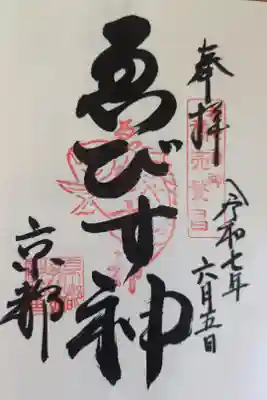 奉拝
令和七年
六月五日
ゑびす神
京都